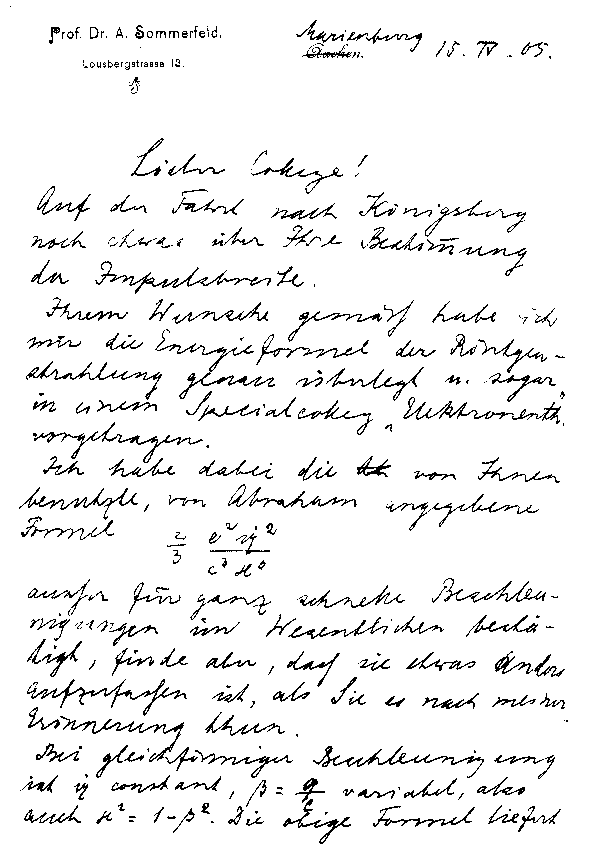 Prof. Dr. A. Sommerfeld.
Lousbergstrasse 13.
Marienburg
Aachen. 15. IV. 05.
Lieber College!
Auf der Fahrt nach Königsberg
noch etwas über Ihre Bestimmung
der Impulsbreite.
Ihrem Wunsche gemäß habe ich
mir die Energieformel der Röntgen-
strahlung genau überlegt u. sogar
in einem Specialcolleg „Elektronenth.“
vorgetragen.
Ich habe dabei die von Ihnen
benutzte, von Abraham angegebene
Formel 2/3 e² q̇² / c³ ϰ⁶
ausser für ganz schnelle Beschleu-
nigungen im Wesentlichen bestä-
tigt, finde aber, daß sie etwas anders
aufzufassen ist, als Sie es nach meiner
Erinnerung thun.
Bei gleichförmiger Beschleunigung
ist q̇ constant, β = q/c variabel, also
auch ϰ² = 1 - β². Die obige Formel liefert